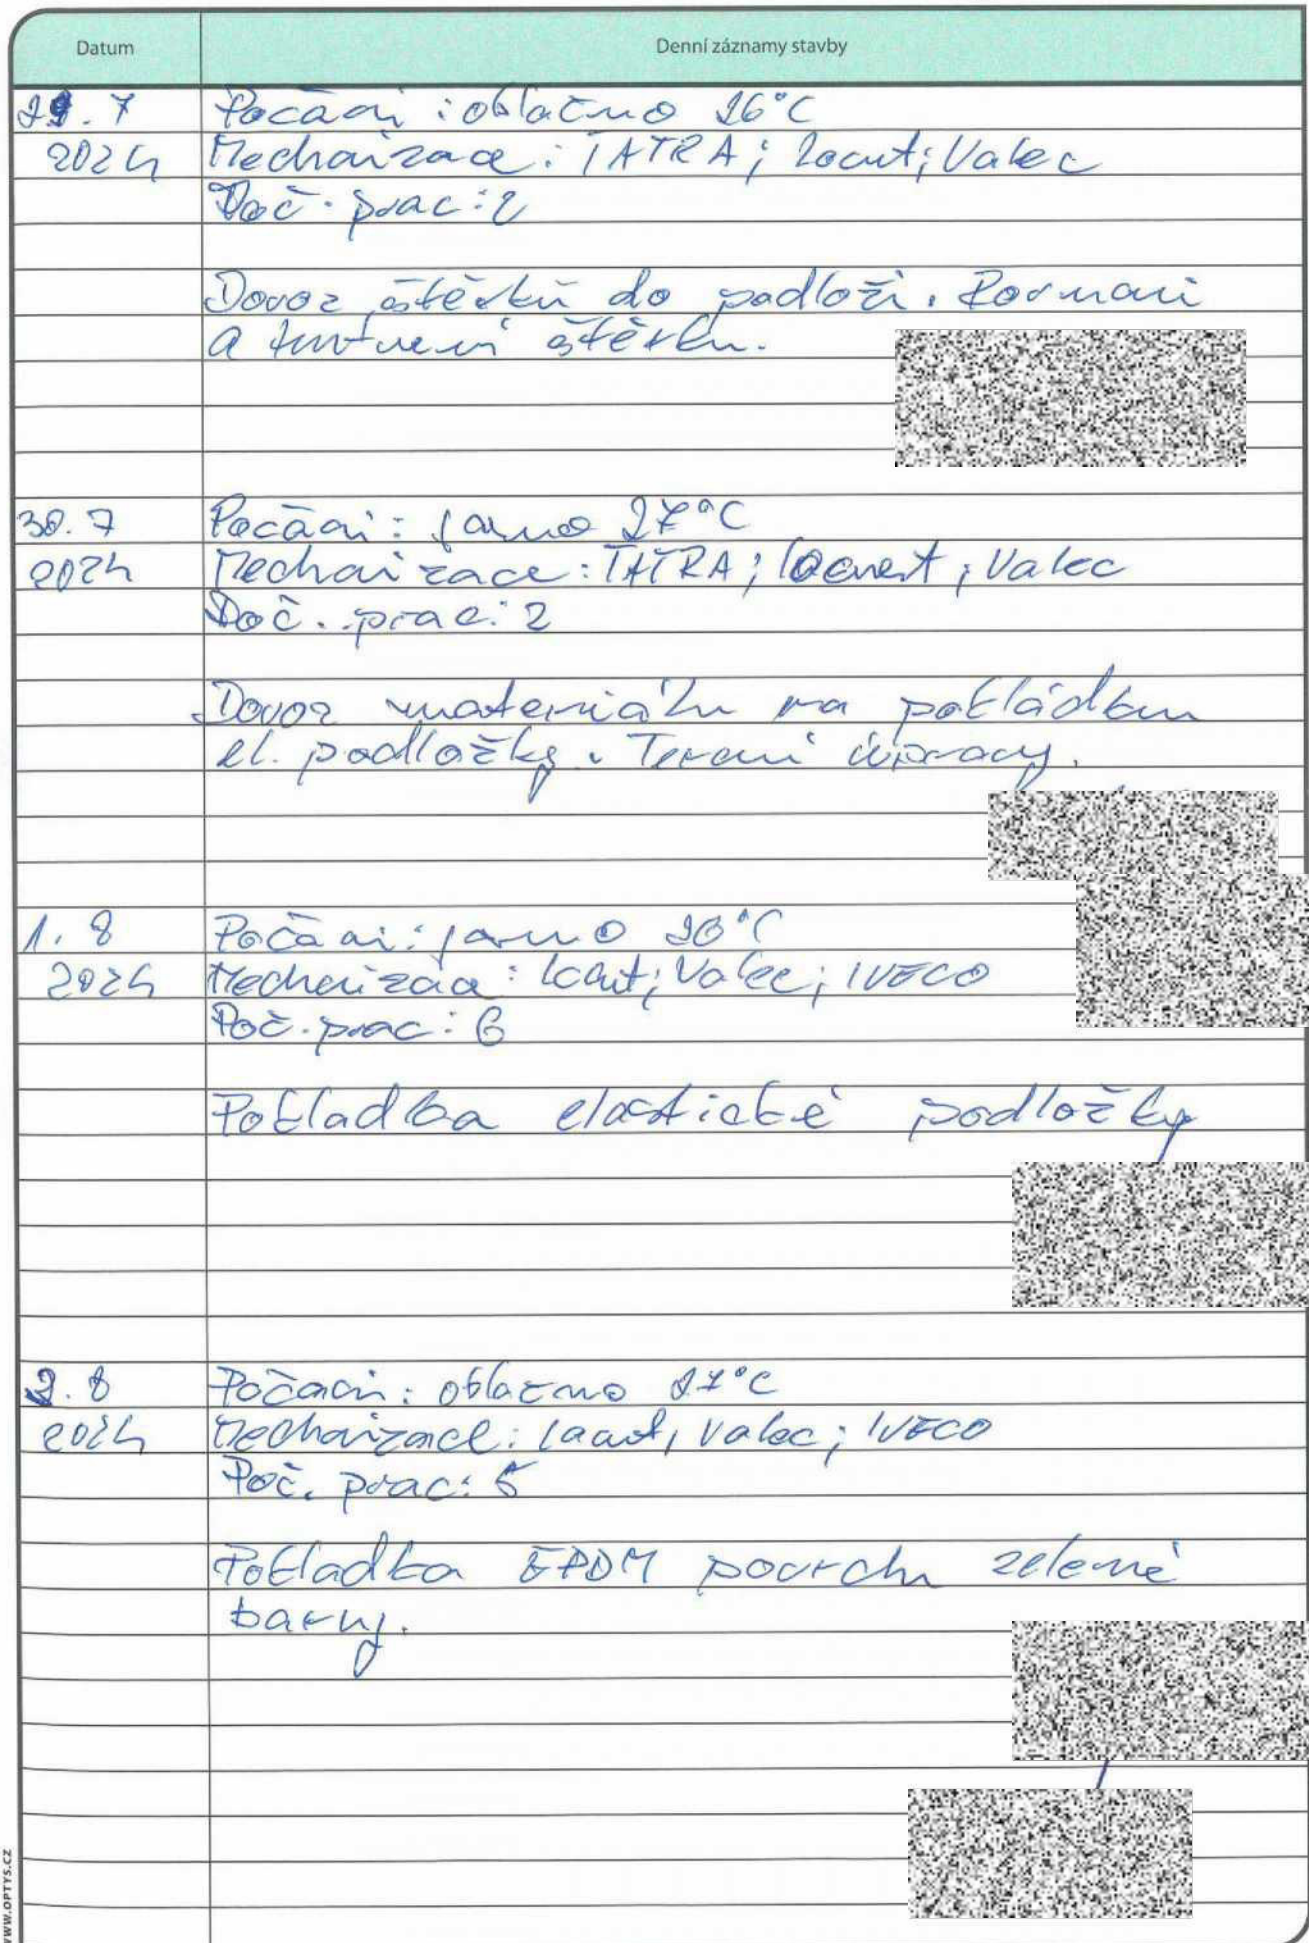 Datum
Denní záznamy stavby
29. 7 Počasí : oblačno 26°C
2024 Mechanizace : TATRA ; Locust ; Valec
Poč. prac : 2
Dovoz štěrků do podloží. Rovnani
a hutneni štěrku.
30. 7 Počasi : jasno 27°C
2024 Mechanizace : TATRA ; locust ; Valec
Poč. prac : 2
Dovoz materiálu na pokládku
el. podložky. Tereni úpravy.
1. 8 Počasi : jasno
2024 Mechanizace : locust ; Valec ; IVECO
Poč. prac : 6
Pokladka elastické podložky
2. 8 Počasi : oblačno 27°C
2024 Mechanizace : locust, valec ; IVECO
Poč. prac : 5
Pokladka EPDM povrchu zelené
barvy.
WWW.OPTYS.CZ